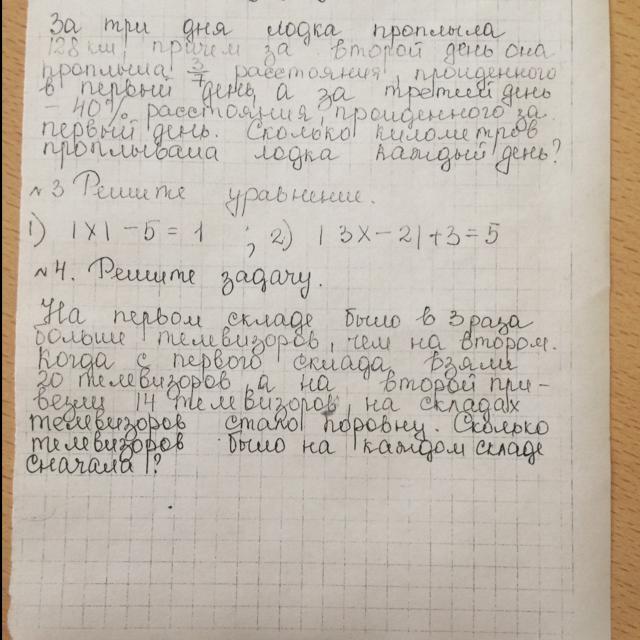 За три дня лодка проплыла
128 км, причем за второй день она
проплыла 3/7 расстояния, пройденного
в первый день, а за третий день
- 40% расстояния, пройденного за
первый день. Сколько километров
проплывала лодка каждый день?
№3 Решите уравнение.
1) |x| - 5 = 1 ; 2) | 3x - 2| + 3 = 5
№4. Решите задачу.
На первом складе было в 3 раза
больше телевизоров, чем на втором.
Когда с первого склада взяли
20 телевизоров, а на второй при-
везли 14 телевизоров, на складах
телевизоров стало поровну. Сколько
телевизоров было на каждом складе
сначала?